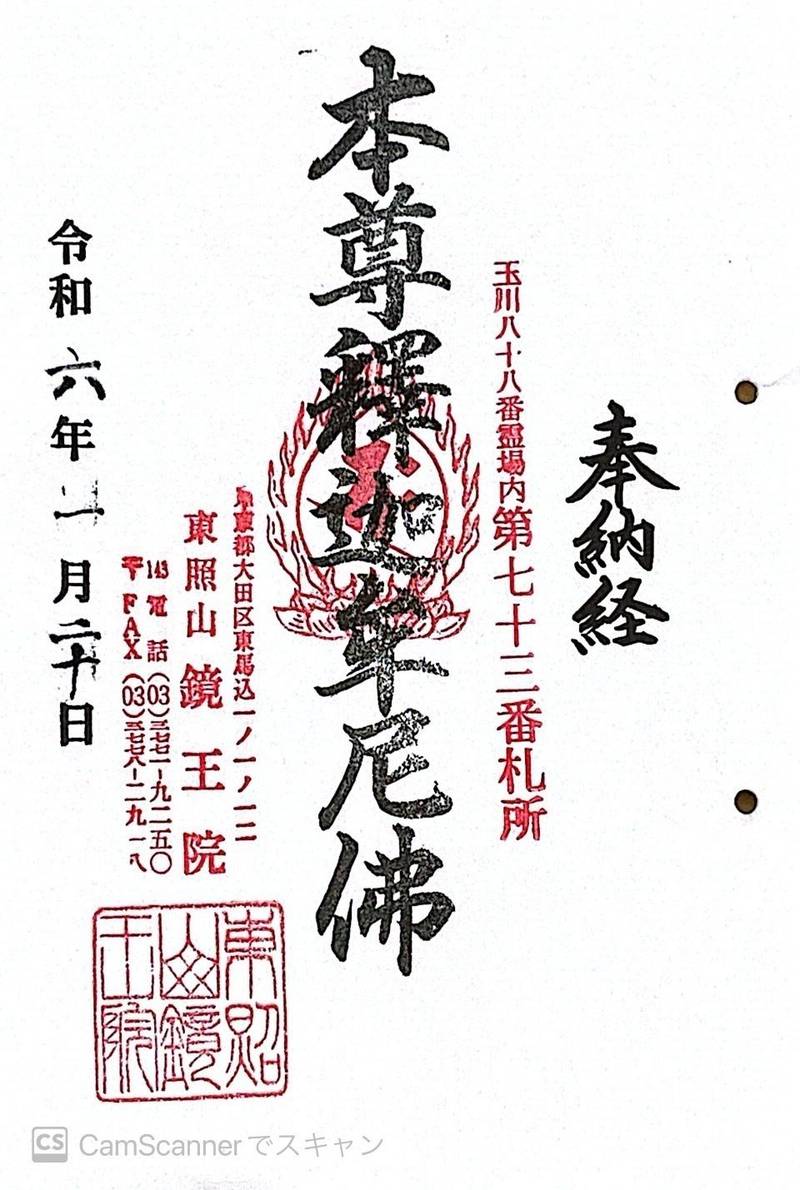 奉納経
玉川八十八番霊場内第七十三番札所
本尊釋迦牟尼佛
東京都大田区東馬込一ノ一ノ一二
東照山 鏡王院
143 電話(03)三七七一-九二五〇
〒 FAX(03)三七七八-二九一八
令和六年一月二十日
東照
山鏡
王院
CS CamScannerでスキャン